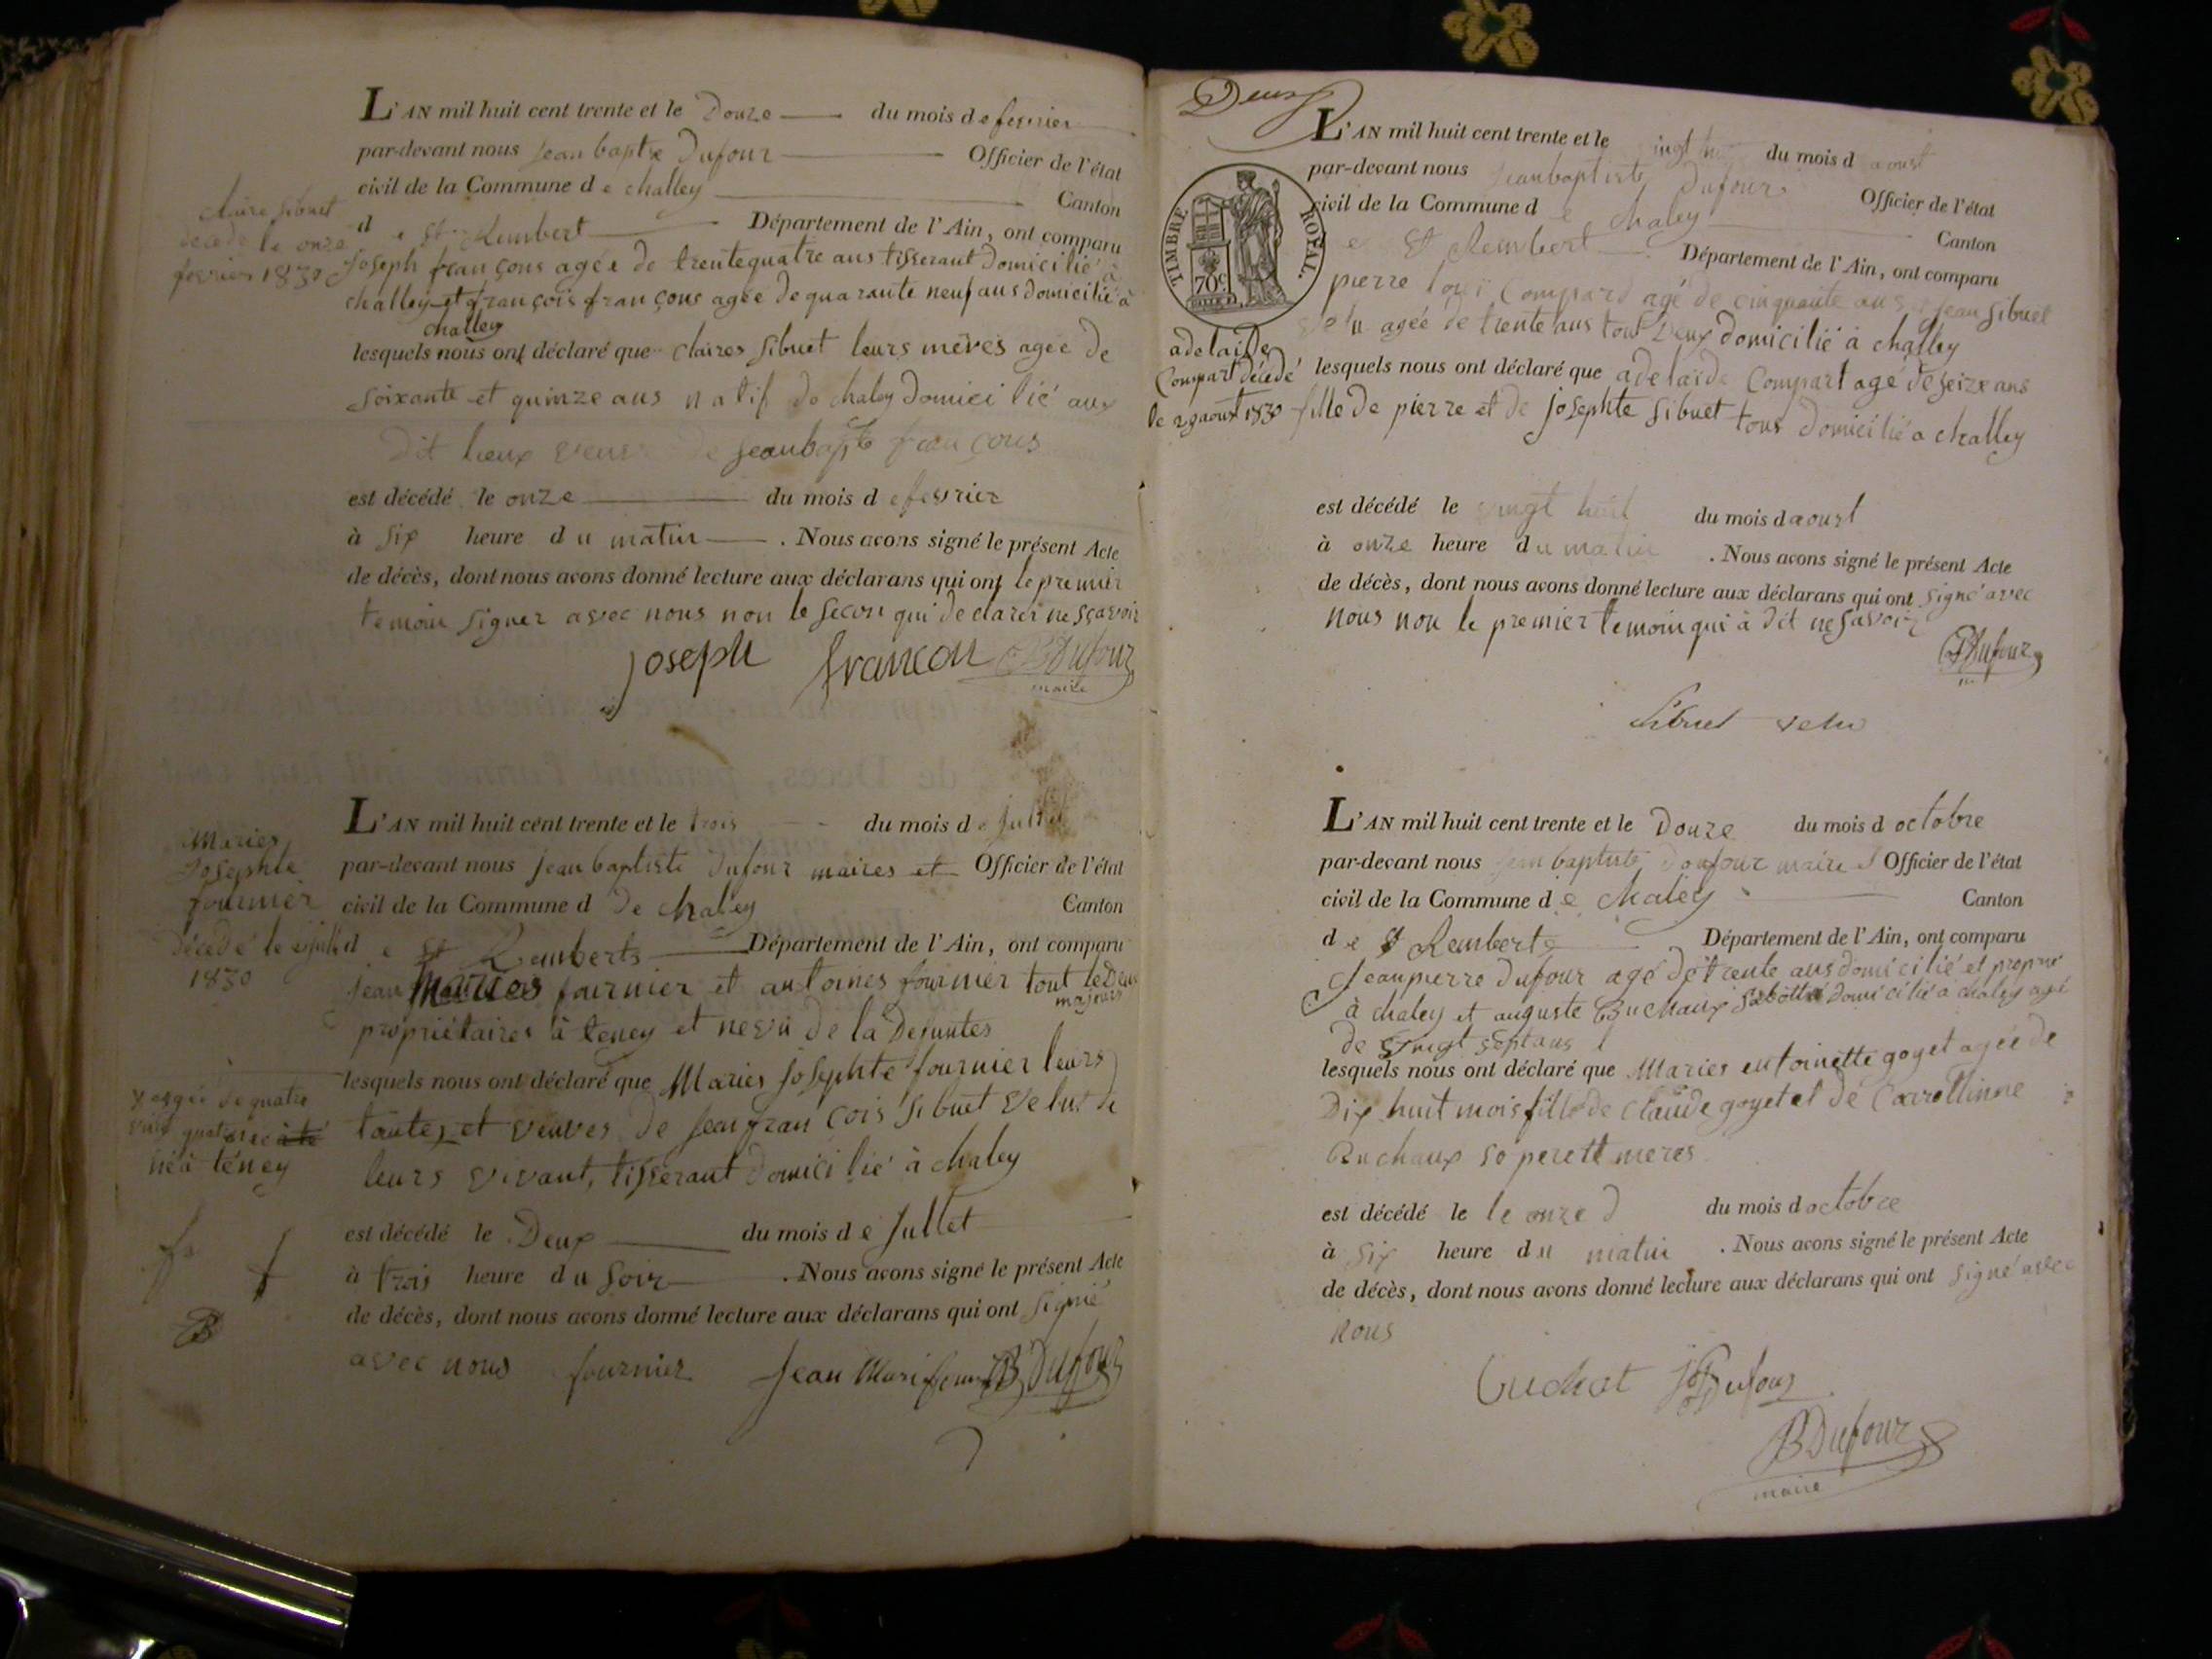 L'AN mil huit cent trente et le Douze du mois de fevrier
par-devant nous jean baptte Dufour Officier de l'état
civil de la Commune de challey Canton
de st Rembert Département de l'Ain, ont comparu
joseph françons agée de trentequatre ans tisseraut domicilié à
challey et françois françons agée de quarante neuf ans domicilié à
challey
lesquels nous ont déclaré que claires sibuet leurs mères agée de
soixante et quinze ans natif de chaley domicilié aux
dit lieux veuve de jeanbapte françons
est décédé le onze du mois de fevrier
à six heure du matin . Nous avons signé le présent Acte
de décès, dont nous avons donné lecture aux déclarans qui ont le premier
temoin signer avec nous non le secon qui declarer ne sçavoir
joseph francon JB Dufour
maire
claire sibuet
décédé le onze
fevrier 1830
L'AN mil huit cent trente et le trois du mois de jullet
par-devant nous jean baptiste dufour maires et Officier de l'état
civil de la Commune d De chaley Canton
de st Remberts Département de l'Ain, ont comparu
jean Maries fournier et antoines fournier tout le deux
majeurs
propriétaires à teney et nevu de la Defuntes
lesquels nous ont déclaré que Maries josephte fournier leurs
tantes et veuves de jean françois sibuet velut de
leurs vivant, tisserant domicilié à chaley
est décédé le Deux du mois de jullet
à trois heure du soir . Nous avons signé le présent Acte
de décès, dont nous avons donné lecture aux déclarans qui ont signié
avec nous fournier jean Mari JB Dufour
Maries
josephte
fournier
décédé le
1830
agée de quatre
né à téney
Deux
L'AN mil huit cent trente et le vingt du mois d aoust
par-devant nous jeanbaptiste Dufour Officier de l'état
civil de la Commune de chaley Canton
e st Rembert Département de l'Ain, ont comparu
TIMBRE ROYAL.
70c
pierre loui Compard agé de cinquante ans et jean sibuet
velu agée de trente ans tout deux domicilié à challey
lesquels nous ont déclaré que adelaide Compart agé de seize ans
fille de pierre et de josephte sibuet tous domicilié a challey
adelaide
Compart décédé
le 29 aoust 1830
est décédé le vingt huit du mois d aoust
à onze heure du matin . Nous avons signé le présent Acte
de décès, dont nous avons donné lecture aux déclarans qui ont signé avec
nous non le premier temoin qui à dit ne savoir
JB Dufour
Sibuet velu
L'AN mil huit cent trente et le Douze du mois d octobre
par-devant nous jean baptiste doufour maire Officier de l'état
civil de la Commune de chaley Canton
de st Rembert Département de l'Ain, ont comparu
jeanpierre dufour agé de trente ans domicilié et propre
à chaley et auguste domicilié à chaley agé
de vingt sept ans
lesquels nous ont déclaré que Maries entoinette goyet agée de
Dix huit mois fille de claude goyet et de
Buchaux so perett meres
est décédé le le onze du mois d octobre
à six heure du matin . Nous avons signé le présent Acte
de décès, dont nous avons donné lecture aux déclarans qui ont signé avec
nous
Cuchat JP Dufour
JB Dufour
maire